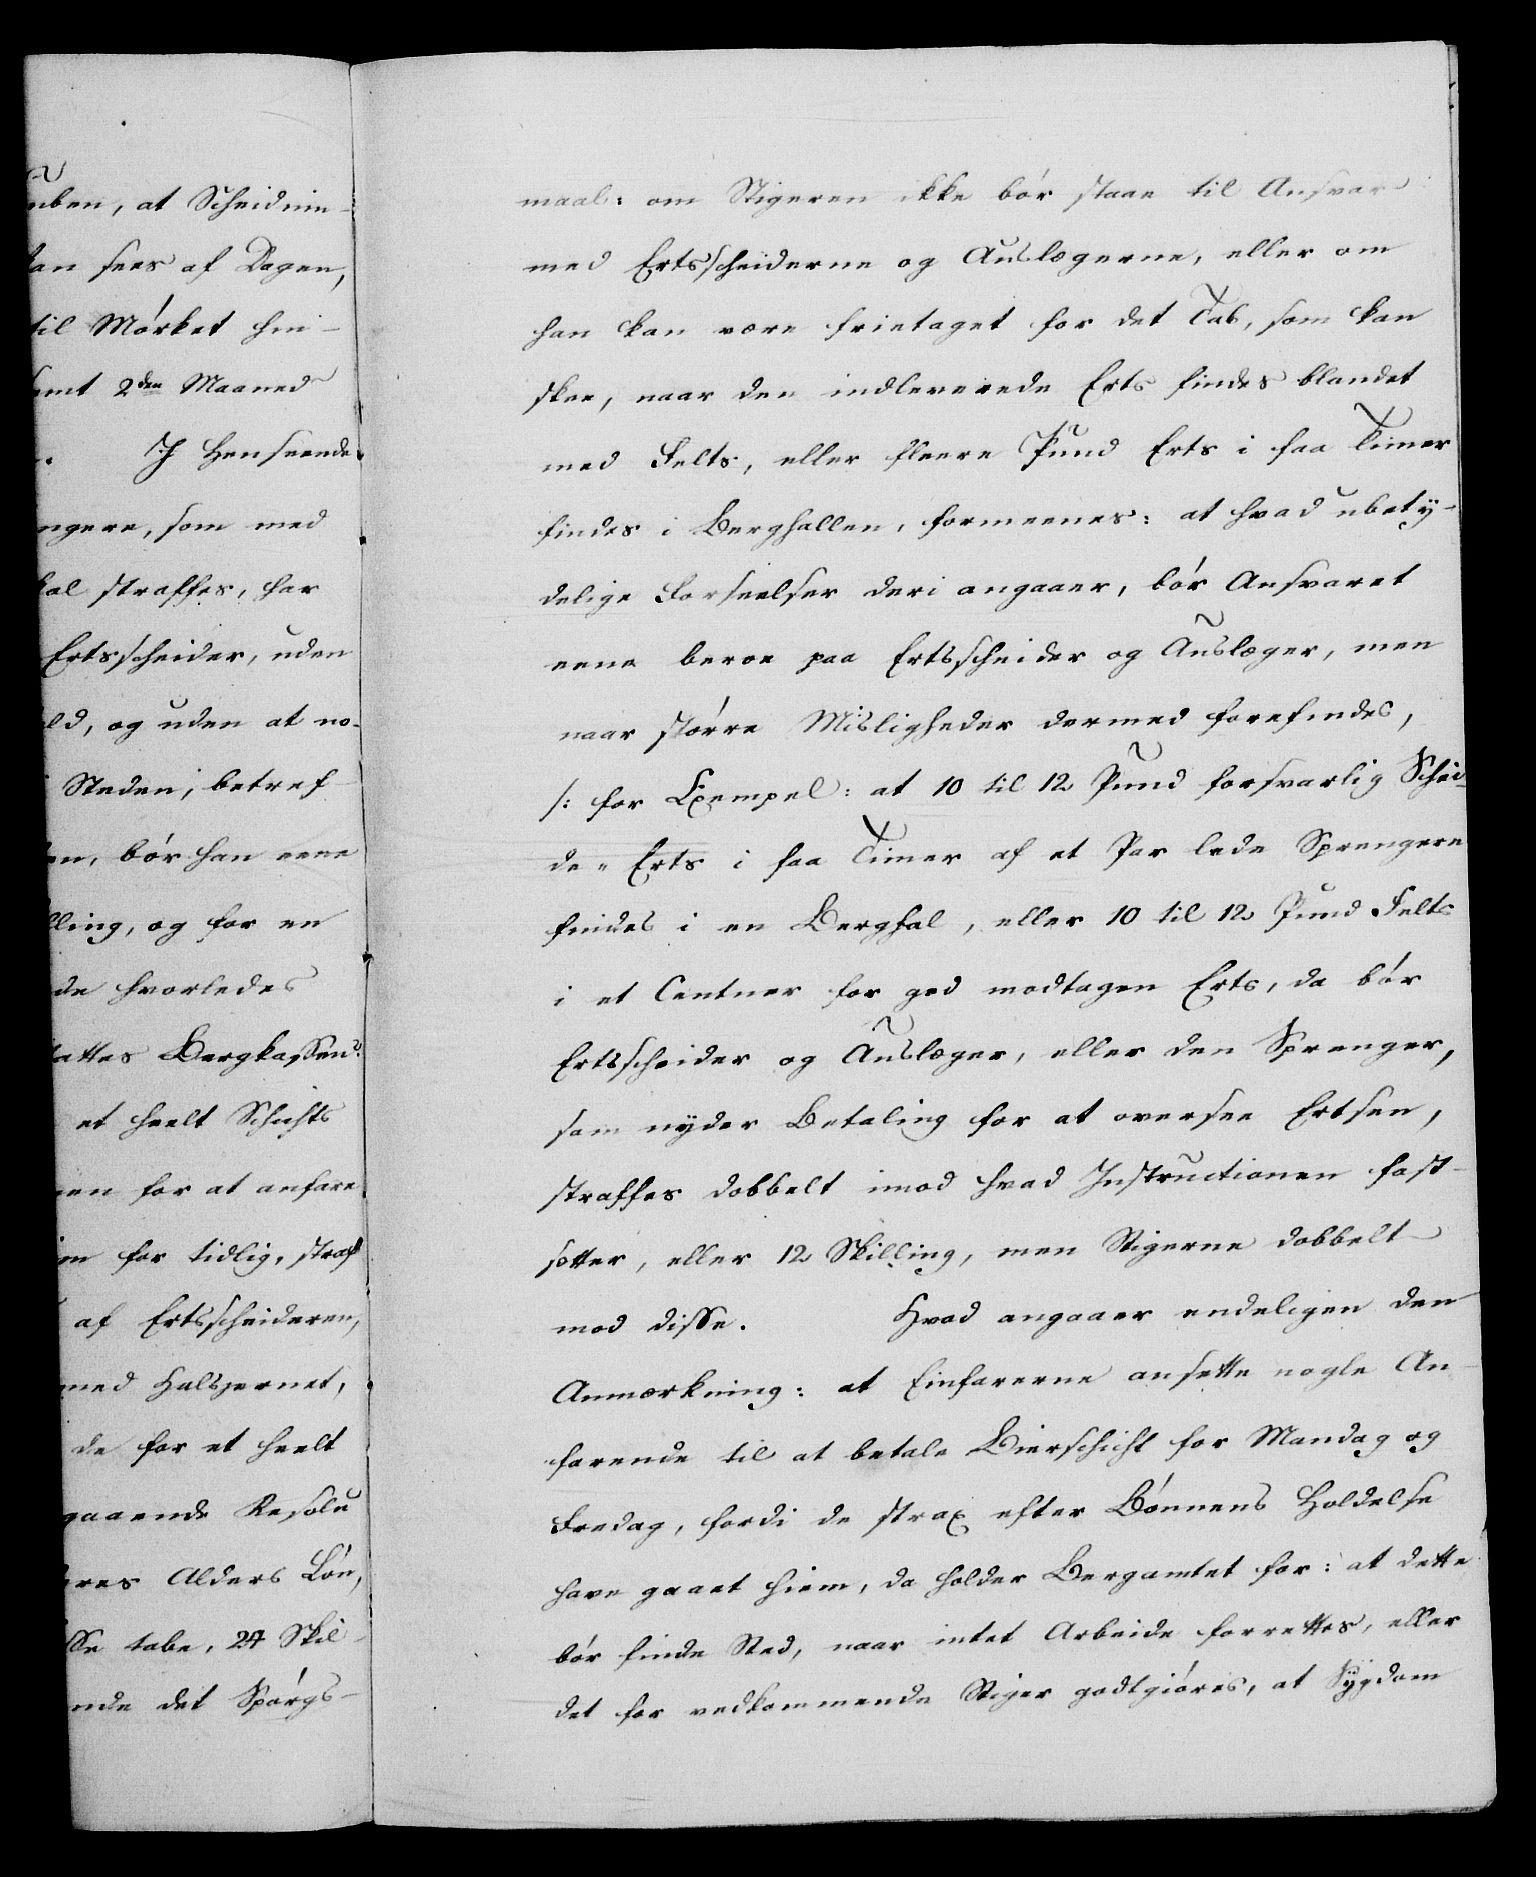 uben, at Scheidnin-
kan sees af Dagen,
til Mørket hin-
samt 2den Maaned
. I Henseende
ngere, som med
kal straffes, har
Ertsscheider, uden
ld, og uden at no-
Steden; betref-
en, bør han eene
lling, og for en
de hvorledes
attes Bergkassen.
et heelt Schichts
en for at anfare
im for tidlig, straf
af Ertsscheideren,
med Halsjernet,
de for et heelt
gaaende Resolu
eres Alders Løn,
sse tabe, 24 Skil-
nde det Spørgs-
maal: om Stigeren ikke bør staae til Ansvar
med Ertsscheiderne og Auslægerne, eller om
han kan være frietaget for det Tab, som kan
skee, naar den indleverede Erts findes blandet
med Felts, eller fleere Pund Erts i faa Timer
findes i Berghallen, formeenes: at hvad ubety-
delige Forseelser deri angaaer, bør Ansvaret
eene beroe paa Ertsscheider og Auslæger, men
naar større Misligheder dermed forefindes,
/: for Exempel: at 10 til 12 Pund forsvarlig Schei-
de-Erts i faa Timer af et Par lede Sprengere
findes i en Berghal, eller 10 til 12 Pund Felts
i et Centner for god modtagen Erts, da bør
Ertsscheider og Auslæger, eller den Sprenger,
som nyder Betaling for at oversee Ertsen,
straffes dobbelt imod hvad Instructionen fast-
sætter, eller 12 Skilling, men Stigerne dobbelt
mod disse. Hvad angaaer endeligen den
Anmærkning: at Einfarerne ansette nogle An-
farende til at betale Bierschicht for Mandag og
Fredag, fordi de strax efter Bønnens Holdelse
have gaaet hiem, da holder Bergamtet for: at dette
bør finde Sted, naar intet Arbeide forrettes, eller
det for vedkommende Stiger godtgiøres, at Sygdom